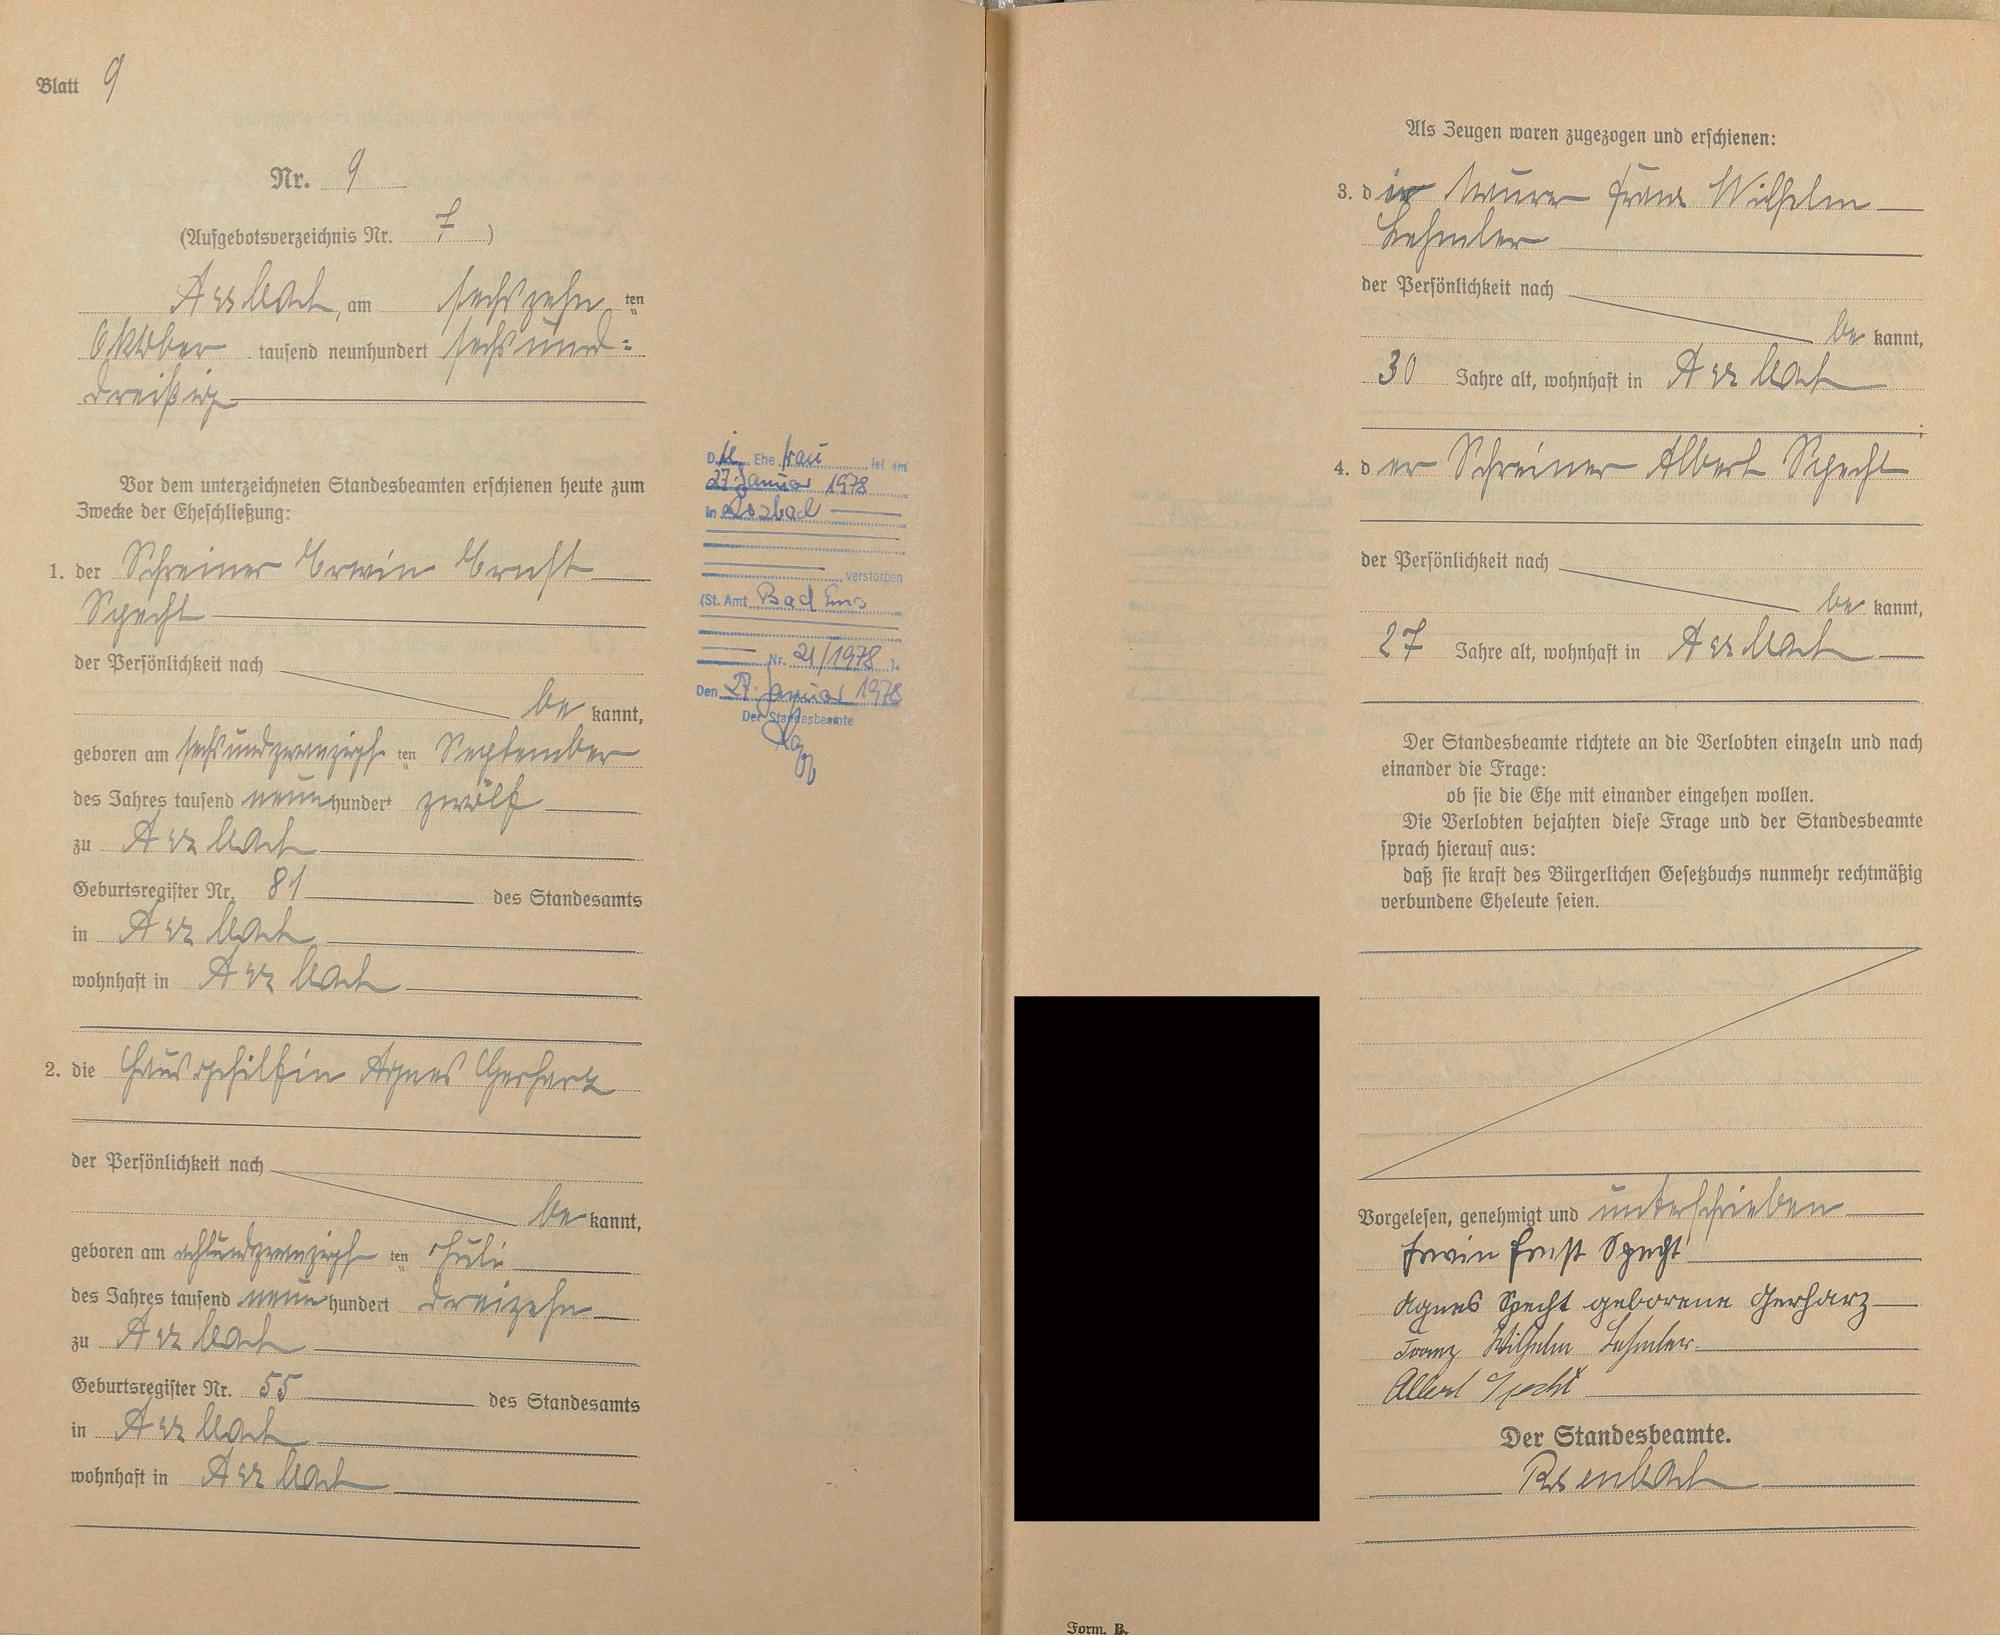 Blatt 9
Nr. 9
(Aufgebotsverzeichnis Nr. 7)
Arzbach, am sechszehn ten
Oktober tausend neunhundert sechsund-
dreißig
Vor dem unterzeichneten Standesbeamten erschienen heute zum
Zwecke der Eheschließung:
1. der Schreiner Erwin Ernst
Specht
der Persönlichkeit nach
be kannt,
geboren am sechsundzwanzigs ten September
des Jahres tausend neun hundert zwölf
zu Arzbach
Geburtsregister Nr. 81 des Standesamts
in Arzbach
wohnhaft in Arzbach
2. die Hausgehilfin Agnes Gerharz
der Persönlichkeit nach
be kannt,
geboren am achtundzwanzigs ten Juli
des Jahres tausend neun hundert dreizehn
zu Arzbach
Geburtsregister Nr. 55 des Standesamts
in Arzbach
wohnhaft in Arzbach
Die Ehefrau ist am
27. Januar 1978
in Arzbach
verstorben
(St. Amt Bad Ems
Nr. 21/1978).
Den 27. Januar 1978
Der Standesbeamte
Als Zeugen waren zugezogen und erschienen:
3. der Maurer Franz Wilhelm
Lehmler
der Persönlichkeit nach
be kannt,
30 Jahre alt, wohnhaft in Arzbach
;
4. der Schreiner Albert Specht
der Persönlichkeit nach
be kannt,
27 Jahre alt, wohnhaft in Arzbach
Der Standesbeamte richtete an die Verlobten einzeln und nach
einander die Frage:
ob sie die Ehe mit einander eingehen wollen.
Die Verlobten bejahten diese Frage und der Standesbeamte
sprach hierauf aus:
daß sie kraft des Bürgerlichen Gesetzbuchs nunmehr rechtmäßig
verbundene Eheleute seien.
Vorgelesen, genehmigt und unterschrieben
Erwin Ernst Specht
Agnes Specht geborene Gerharz
Franz Wilhelm Lehmler
Albert Specht
Der Standesbeamte.
Form. B.